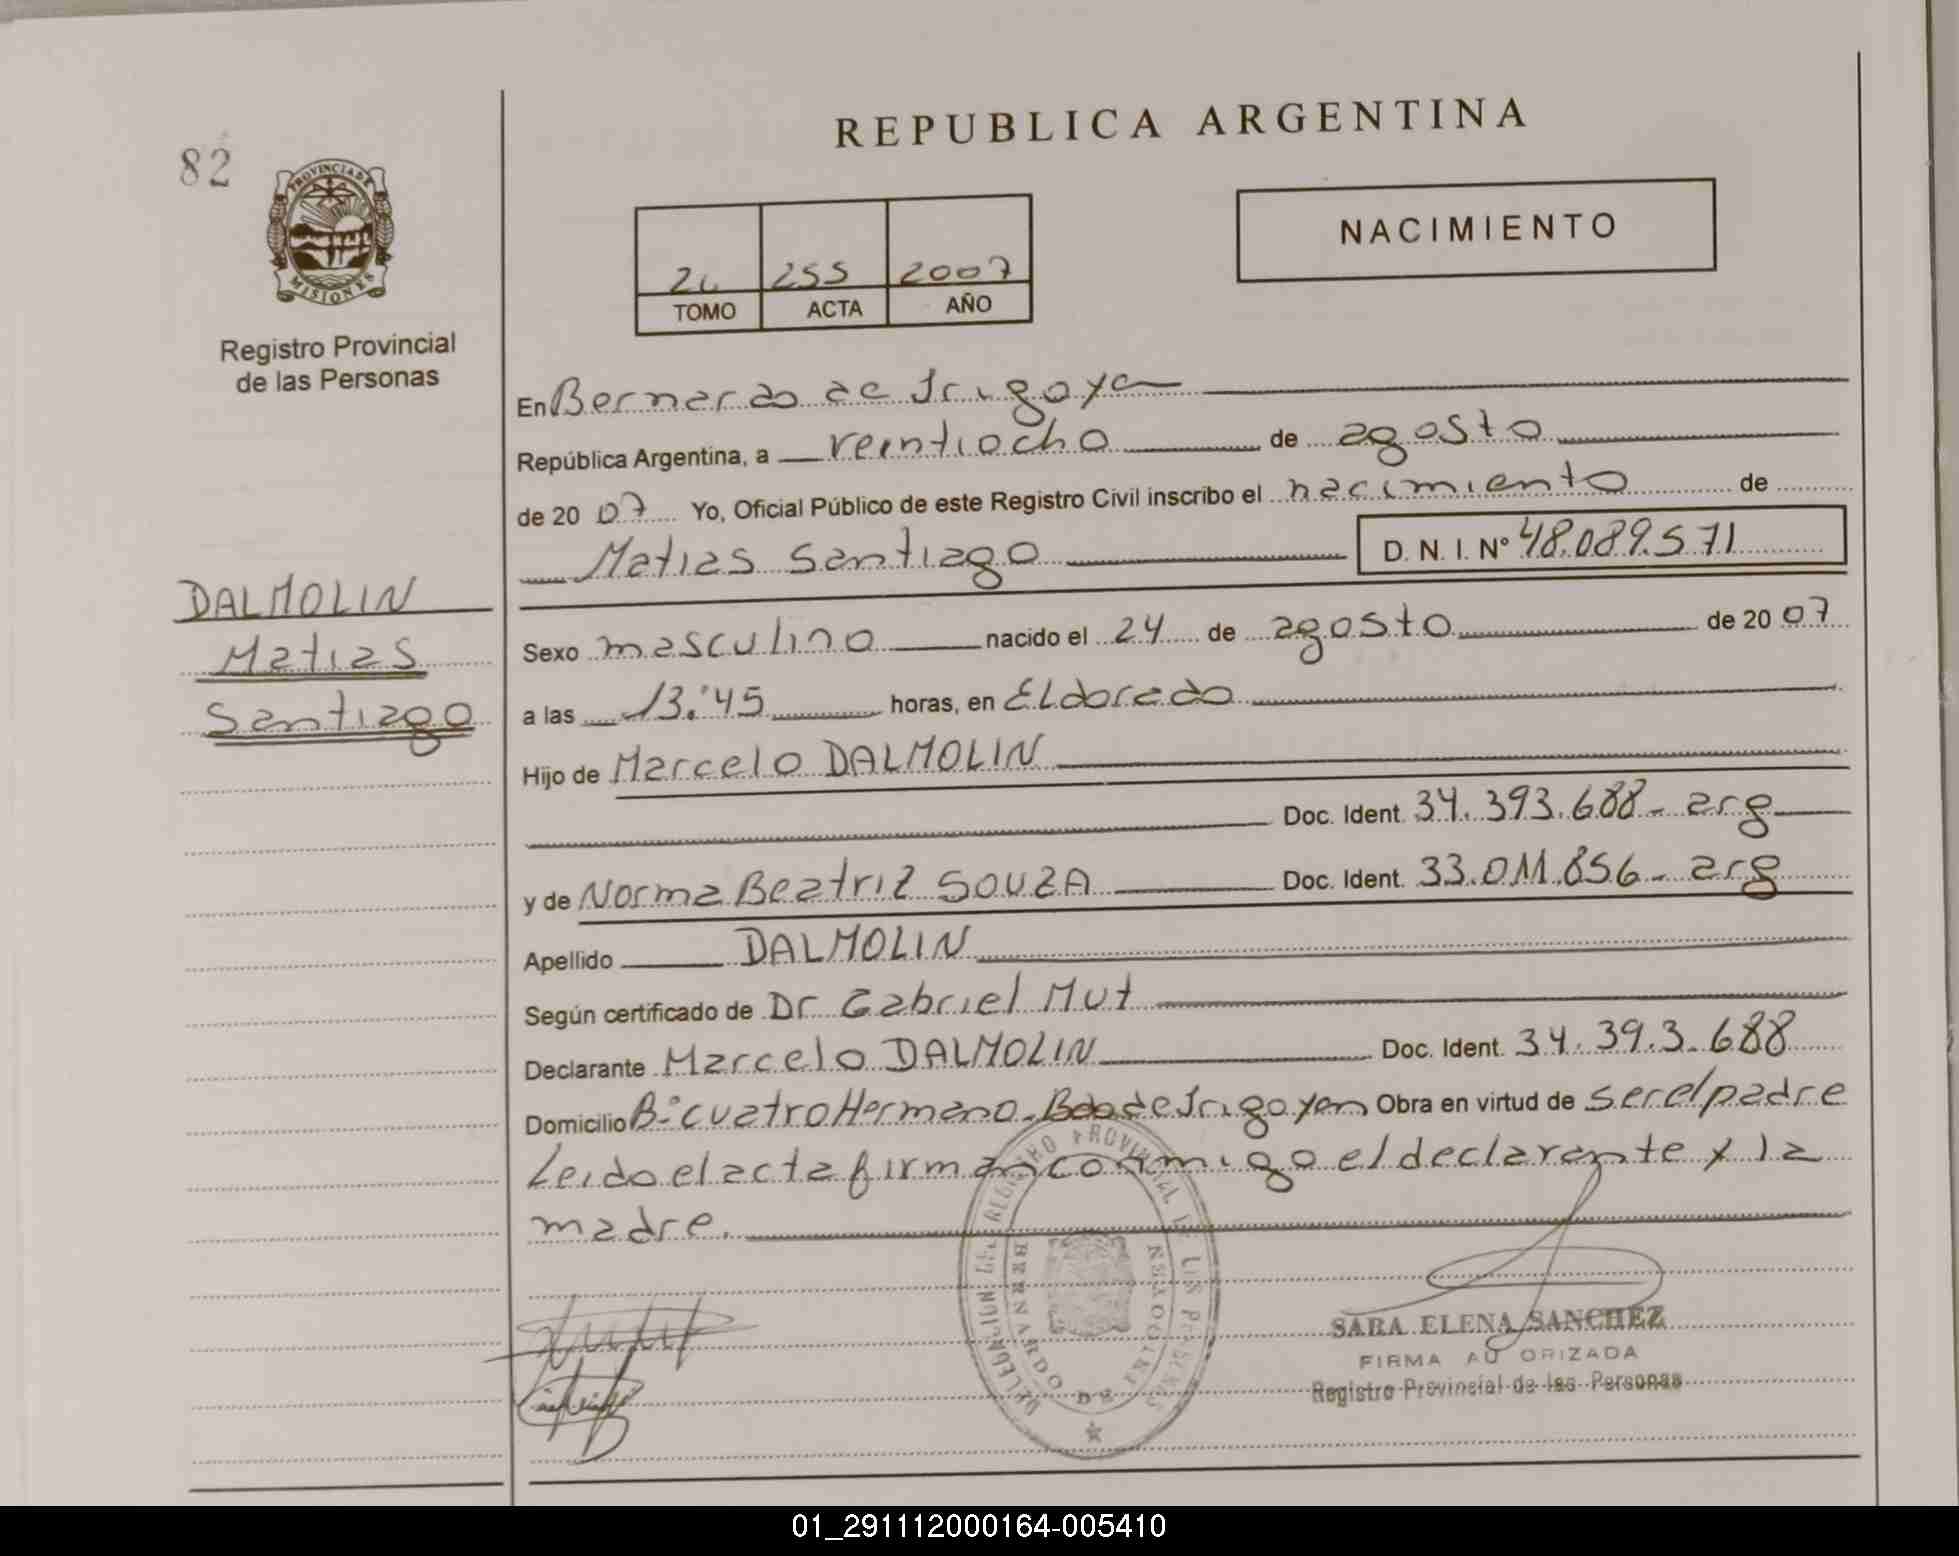 82
PROVINCIA DE
MISIONES
Registro Provincial
de las Personas
DALMOLIN
Matias
Santiago
REPUBLICA ARGENTINA
255 2007
TOMO ACTA AÑO
NACIMIENTO
En Bernardo de Irigoyen
República Argentina, a veintiocho de agosto
de 20 07 Yo, Oficial Público de este Registro Civil inscribo el nacimiento de
Matias Santiago D. N. I. Nº 48.089.571
Sexo masculino nacido el 24 de agosto de 20 07
a las 13:45 horas, en Eldorado
Hijo de Marcelo DALMOLIN
Doc. Ident. 34.393.688- arg
y de Norma Beatriz SOUZA Doc. Ident. 33.011.856- arg
Apellido DALMOLIN
Según certificado de Dr Gabriel Mut
Declarante Marcelo DALMOLIN Doc. Ident. 34.393.688
Domicilio Bº cuatro Hermano- Bdo de Irigoyen Obra en virtud de ser el padre
Leido el acta firman conmigo el declarante y la
madre.
DELEGACION DEL REGISTRO PROVINCIAL DE LAS PERSONAS
BERNARDO DE IRIGOYEN
SARA ELENA SANCHEZ
FIRMA AU ORIZADA
Registro Provincial de las Personas
01_291112000164-005410